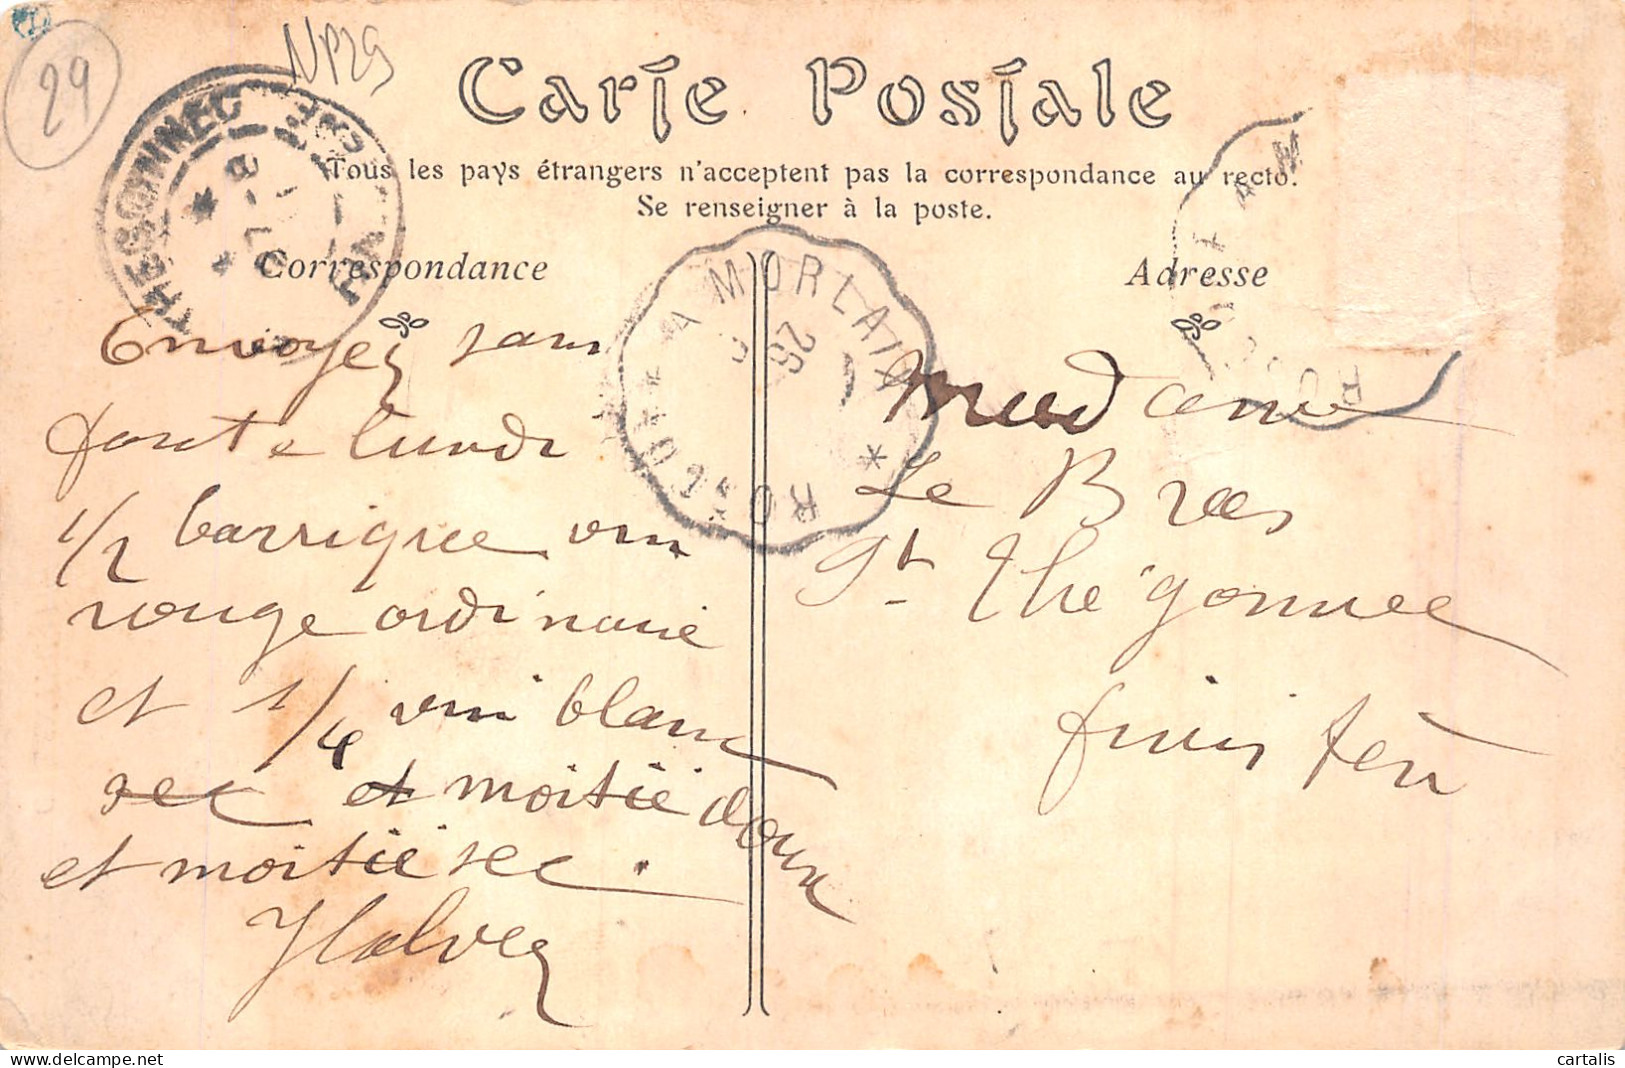 29
NP29
Carte Postale
Tous les pays étrangers n'acceptent pas la correspondance au recto.
Se renseigner à la poste.
Correspondance
Adresse
THEGONNEC
A MORLAIX
ROSCOFF
26
Envoyez sans
faute lundi
1/2 barrique vin
rouge ordinaire
et 1/4 vin blanc
sec et moitié doux
et moitié sec.
Madame
Le Bras
St Thégonnec
finistère
cartalis